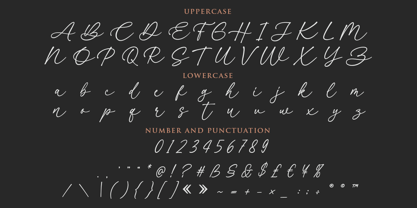 UPPERCASE
A B C D E F G H I J K L M
N O P Q R S T U V W X Y Z
LOWERCASE
a b c d e f g h i j k l m
n o p q r s t u v w x y z
NUMBER AND PUNCTUATION
0123456789
. , ' " " * @ ! ? # ß § & $ £ € ¥ %
/ \ | ( ) { } [ ] « » ~ = + - × _ : ; ÷ ® © ™